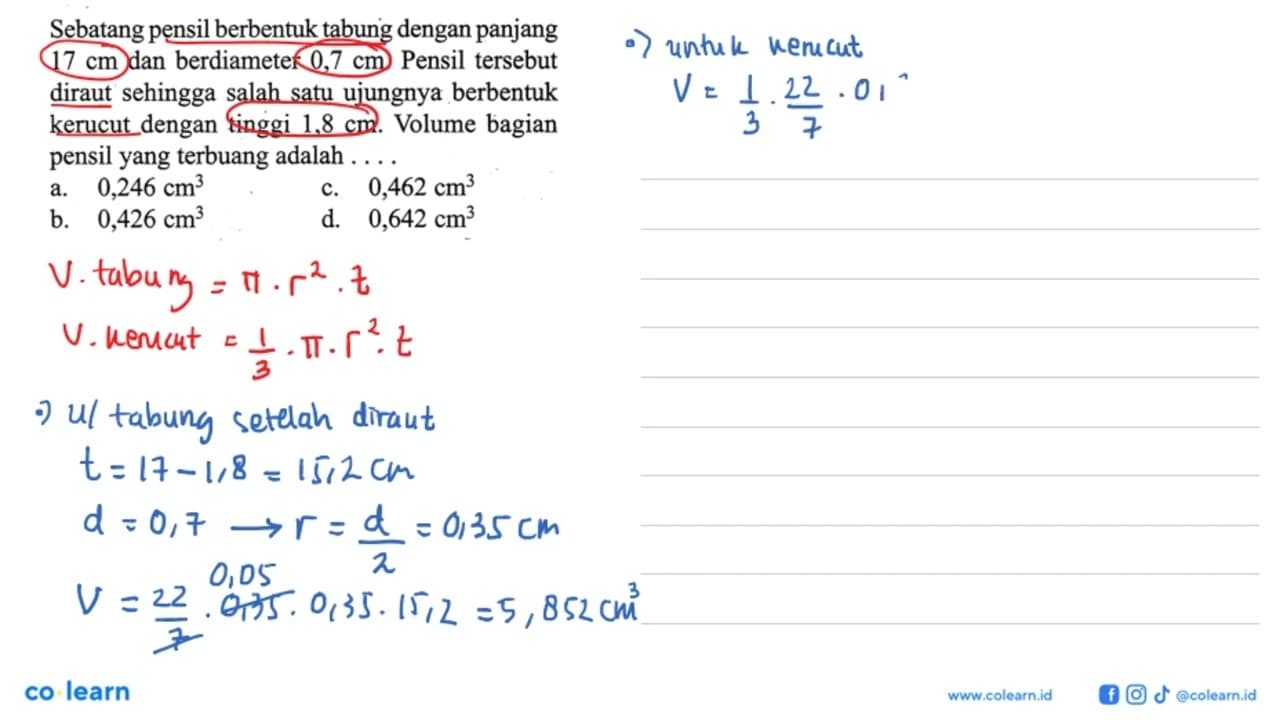 Sebatang pensil berbentuk tabung dengan panjang
17 cm dan berdiameter 0,7 cm. Pensil tersebut
diraut sehingga salah satu ujungnya berbentuk
kerucut dengan tinggi 1,8 cm. Volume bagian
pensil yang terbuang adalah . . . .
a. 0,246 cm³ c. 0,462 cm³
b. 0,426 cm³ d. 0,642 cm³
V. tabung = π . r² . t
V. kerucut = 1/3 . π . r² . t
•) u/ tabung setelah diraut
t = 17 - 1,8 = 15,2 cm
d = 0,7 → r = d/2 = 0,35 cm
0,05
V = 22/7 . 0,35 . 0,35 . 15,2 = 5,852 cm³
•) untuk kerucut
V = 1/3 . 22/7 . 0,
co learn
www.colearn.id @colearn.id